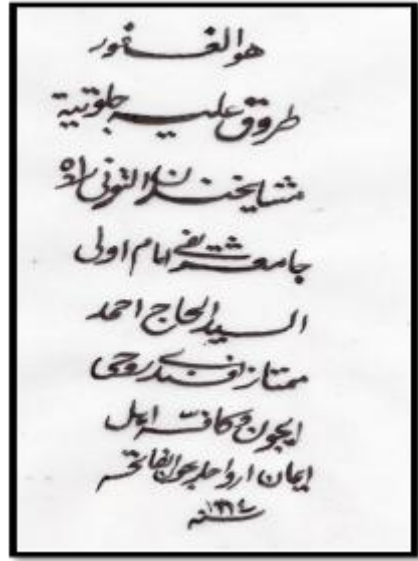 هو الغفور
طروق عليه جلوتيه
مشايخندن التونى زاده
جامع شريفى امام اولى
السيد الحاج احمد
ممتاز افندى روحى
ايچون و كافه اهل
ايمان ارواحيچون الفاتحه
سنه